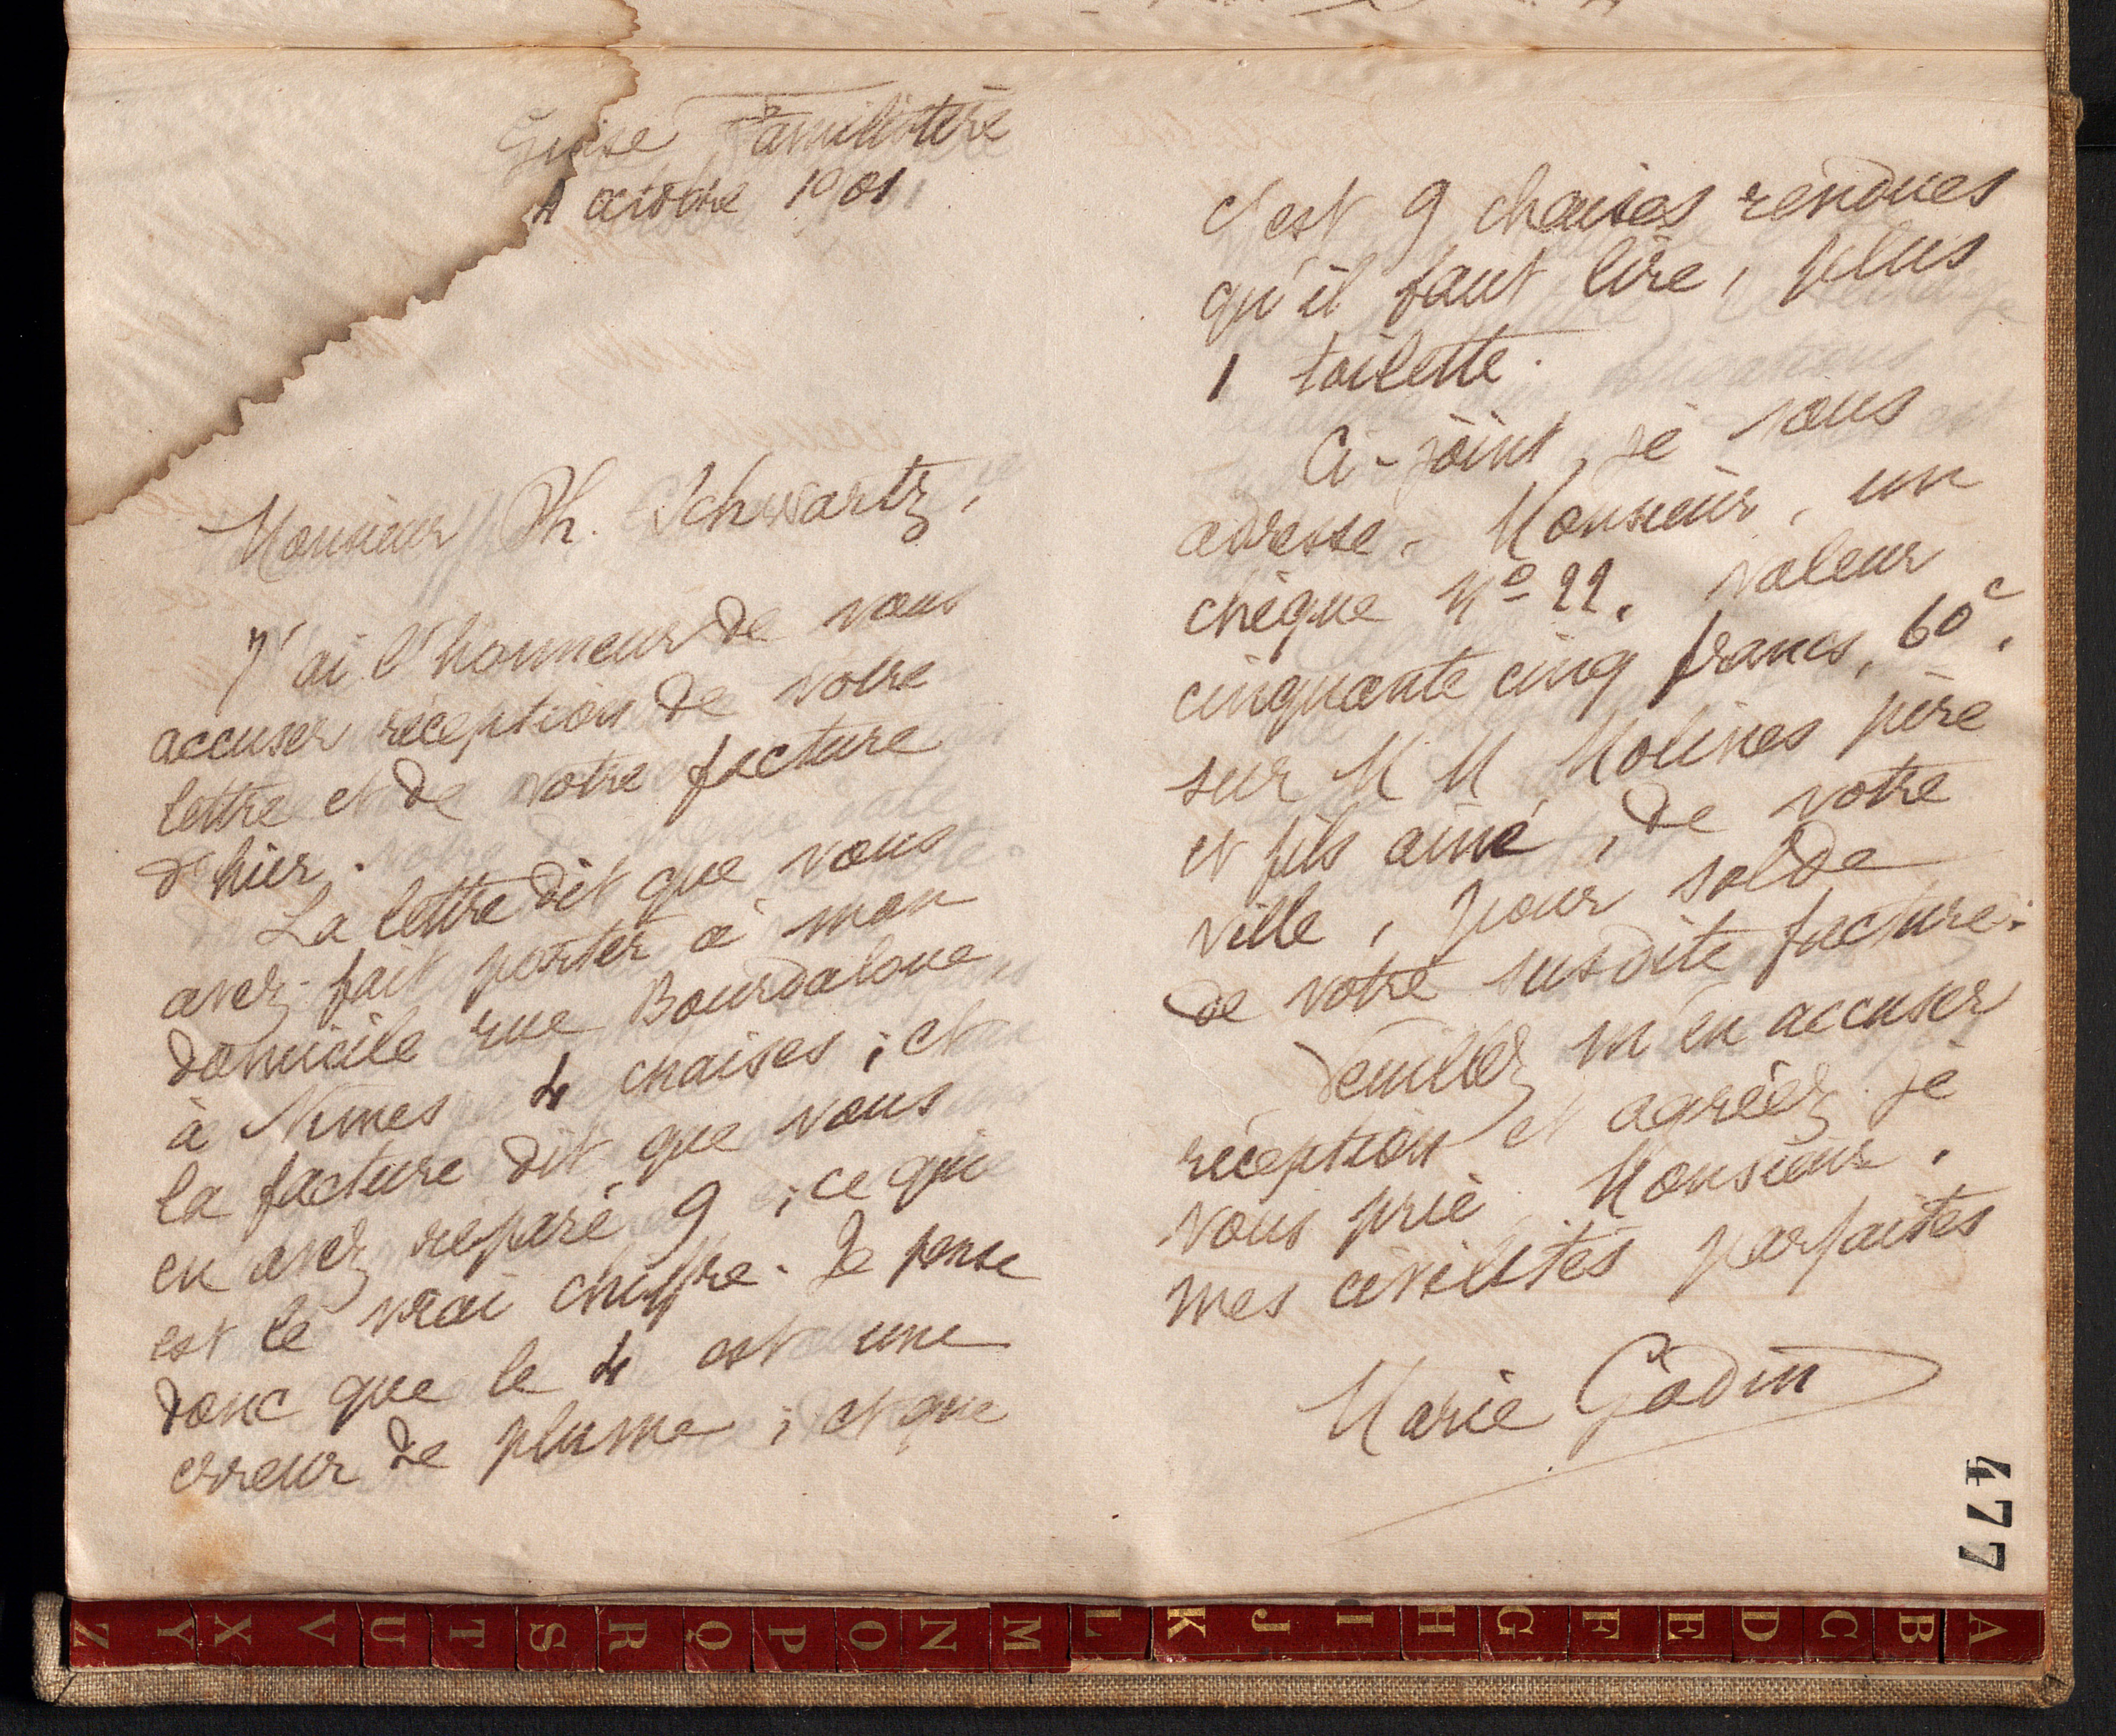 Guise Familistère
4 octobre 1901
Monsieur Th. Schwartz,
J'ai l'honneur de vous
accuser réception de votre
lettre et de votre facture
d'hier.
La lettre dit que vous
avez fait porter à mon
domicile rue Bourdaloue,
à Nimes 4 chaises ; et
la facture dit que vous
en avez réparé 9 ; ce qui
est le vrai chiffre. Je pense
donc que le 4 est une
erreur de plume ; et que
c'est 9 chaises rendues
qu'il faut lire, plus
1 toilette.
Ci-joint, je vous
adresse, Monsieur, un
chèque Nº 22, valeur
cinquante cinq francs, 60c,
sur M M. Molines père
et fils ainé, de votre
ville, pour solde
de votre susdite facture.
Veuillez m'en accuser
réception et agréez je
vous prie, Monsieur,
mes civilités parfaites
Marie Godin
477
A B C D E F G H I J K L M N O P Q R S T U V X Y Z